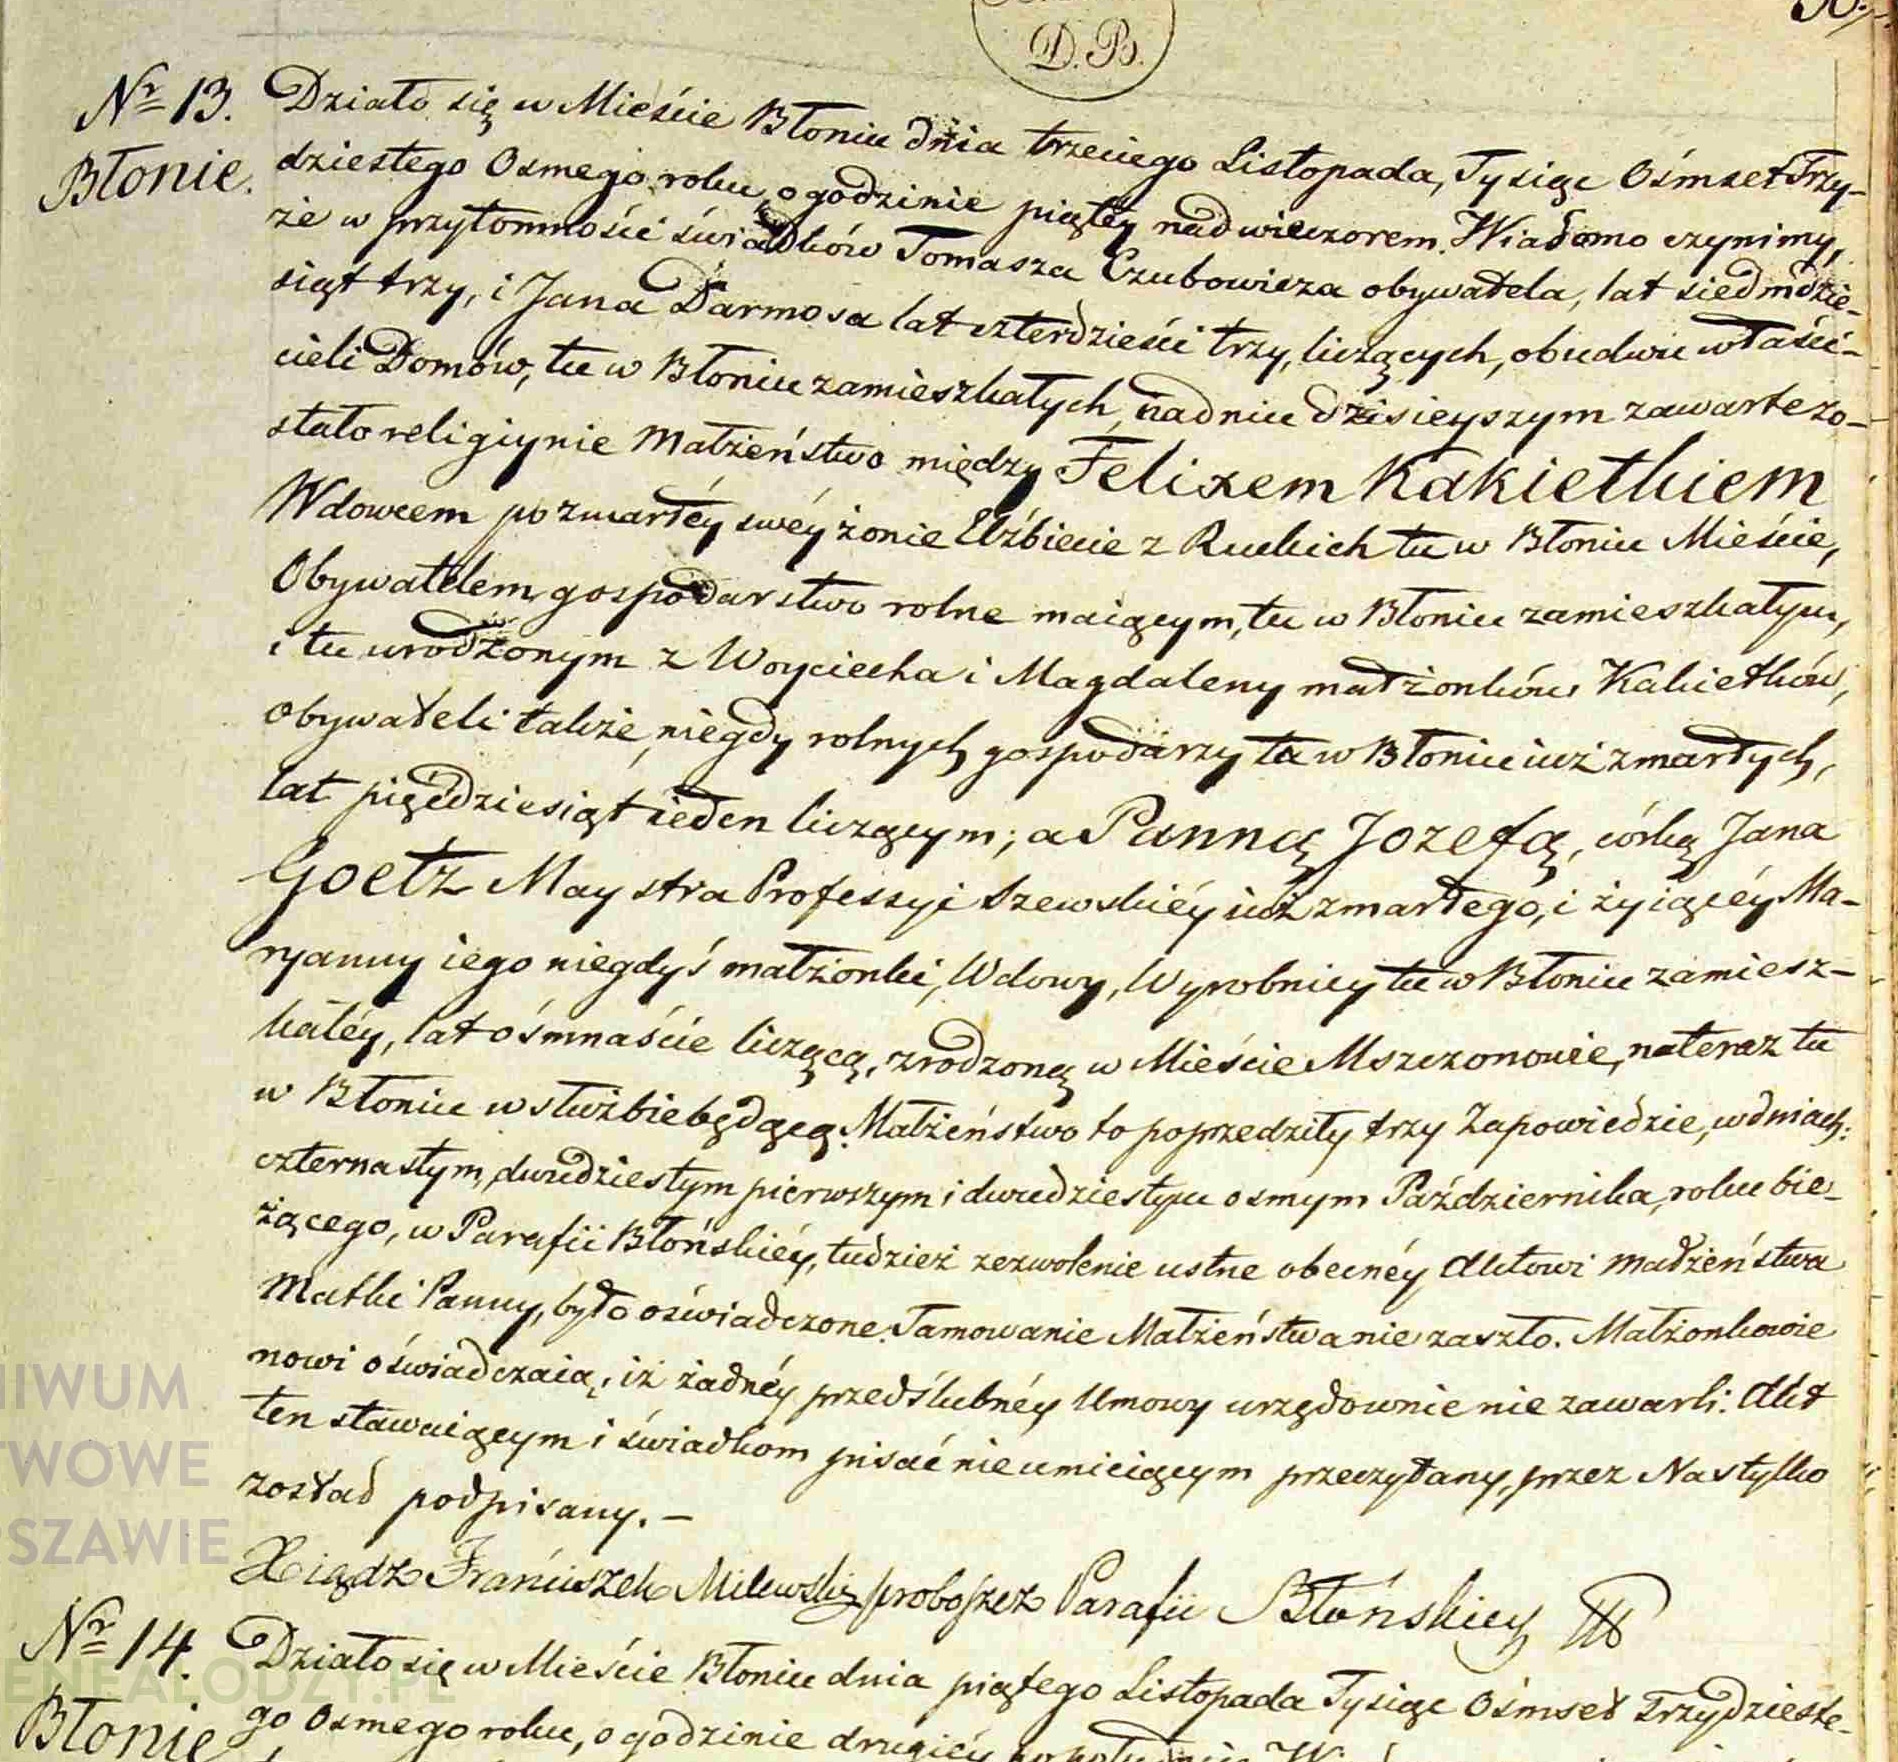 D. Bs.
Nr 13. Działo się w Mieście Błoniu dnia trzeciego Listopada, Tysiąc Ośmset Trzy-
Błonie. dziestego Osmego roku, o godzinie piątey nad wieczorem. Wiadomo czynimy,
że w przytomności świadków Tomasza Czubowicza obywatela, lat siedmdzie-
siąt trzy, i Jana Darmosa lat czterdzieści trzy, liczących, obudwu właści-
cieli Domów, tu w Błoniu zamieszkałych, na dniu dzisieyszym zawarte zo-
stało religiynie Małżeństwo między Felixem Kakietkiem
Wdowcem po zmarłéy swéy żonie Elżbiecie z Ruckich tu w Błoniu Mieście,
Obywatelem gospodarstwo rolne maiącym, tu w Błoniu zamieszkałym,
i tu urodzonym z Woyciecha i Magdaleny małżonków Kakietków,
Obywateli także, niegdy rolnych gospodarzy tu w Błoniu iuż zmarłych,
lat pięćdziesiąt ieden liczącym; a Panną Jozefą, córką Jana
Goetz Maystra Professyi Szewskiéy iuż zmarłego, i żyiącéy Ma-
ryanny iego niegdyś małżonki, Wdowy, Wyrobnicy tu w Błoniu zamiesz-
kałéy, lat ośmnaście liczącą, zrodzoną w Mieście Mszczonowie, na teraz tu
w Błoniu w służbie będącą. Małżeństwo to poprzedziły trzy Zapowiedzie, w dniach:
czternastym, dwudziestym pierwszym i dwudziestym osmym Października, roku bie-
żącego, w Parafii Błońskiéy, tudzież zezwolenie ustne obecnéy Aktowi Małżeństwa
Matki Panny, było oświadczone. Tamowanie Małżeństwa nie zaszło. Małżonkowie
nowi oświadczaią, iż żadnéy przedślubnéy Umowy urzędownie nie zawarli. Akt
ten stawaiącym i świadkom pisać nieumieiącym przeczytany, przez Nas tylko
został podpisany. -
Xiądz Franciszek Milewski proboszcz Parafii Błońskiey
Nr 14. Działo się w Mieście Błoniu dnia piątego Listopada Tysiąc Ośmset Trzydzieste-
Błonie go Osmego roku, o godzinie drugiéy po południu